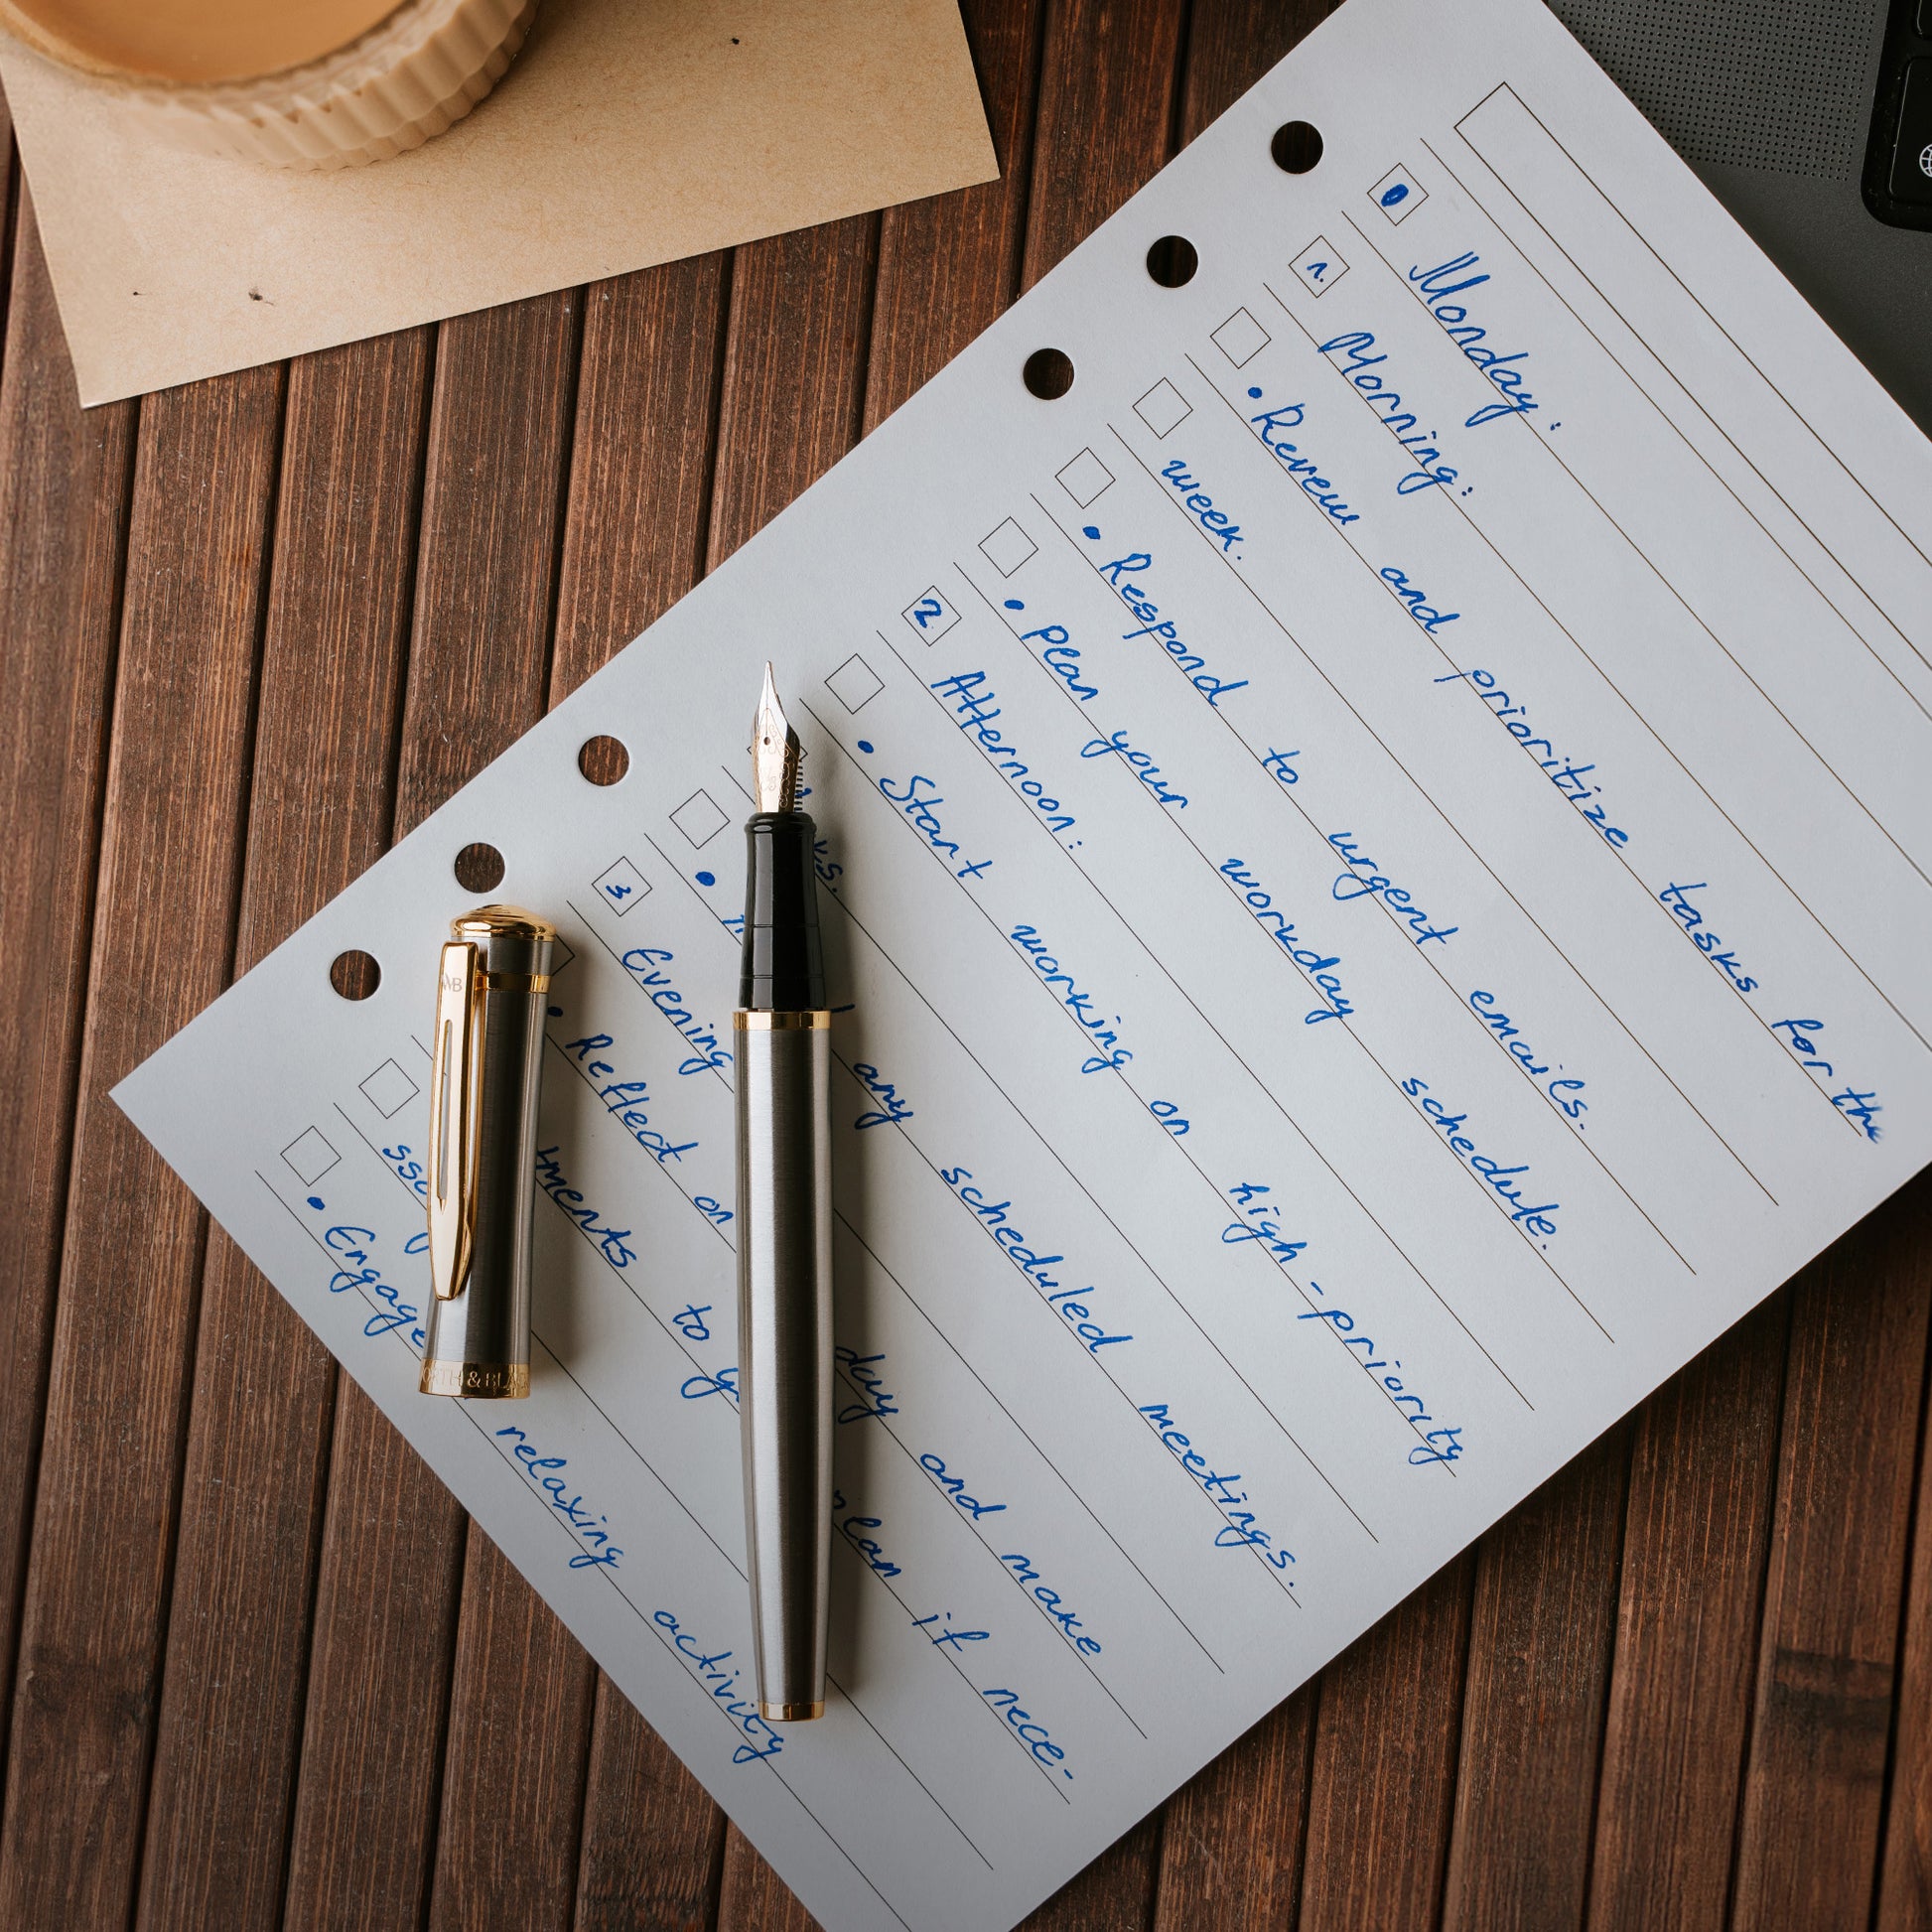 Monday:
1. Morning:
• Review and prioritize tasks for the
week.
• Respond to urgent emails.
• Plan your workday schedule.
2 Afternoon:
• Start working on high-priority
ks.
• any scheduled meetings.
3 Evening
• Reflect on day and make
ments to plan if nece-
• Engage relaxing activity